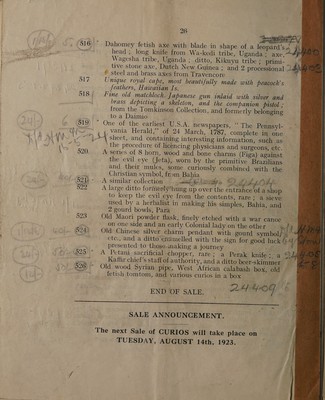 20
516 Dahomey fetish axe with blade in shape of a leopard's
head; long knife from Wa-kedi tribe, Uganda; axe,
Wagesha tribe, Uganda; ditto, Kikuyu tribe; primi-
tive stone axe, Dutch New Guinea; and 2 processional
steel and brass axes from Travencore
517 Unique royal cape, most beautifully made with peacock's
feathers, Hawaiian Is.
518 Fine old matchlock Japanese gun inlaid with silver and
brass depicting a skeleton, and the companion pistol;
from the Tomkinson Collection, and formerly belonging
to a Daimio
519 One of the earliest U.S.A. newspapers, "The Pennsyl-
vania Herald," of 24 March, 1787, complete in one
sheet, and containing interesting information, such as
the procedure of licencing physicians and surgeons, etc.
520 A series of 8 horn, wood and bone charms (Figa) against
the evil eye (Jeta), worn by the primitive Brazilians
and their mules, some curiously combined with the
Christian symbol, from Bahia
521 A similar collection 24404
522 A large ditto formerly hung up over the entrance of a shop
to keep the evil eye from the contents, rare; a sieve
used by a herbalist in making his simples, Bahia, and
2 gourd bowls, Para
523 Old Maori powder flask, finely etched with a war canoe
on one side and an early Colonial lady on the other
524 Old Chinese silver charm pendant with gourd symbol,
etc., and a ditto enamelled with the sign for good luck
presented to those making a journey
525 A Petani sacrificial chopper, rare; a Perak knife; a
Kaffir chief's staff of authority, and a ditto beer-skimmer
526 Old wood Syrian pipe, West African calabash box, old
fetish tomtom, and various curios in a box
24409
END OF SALE.
SALE ANNOUNCEMENT.
The next Sale of CURIOS will take place on
TUESDAY, AUGUST 14th, 1923.